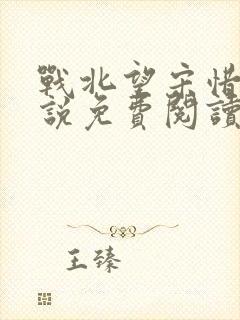 戰北望宋惜
說免費閱讀
王臻